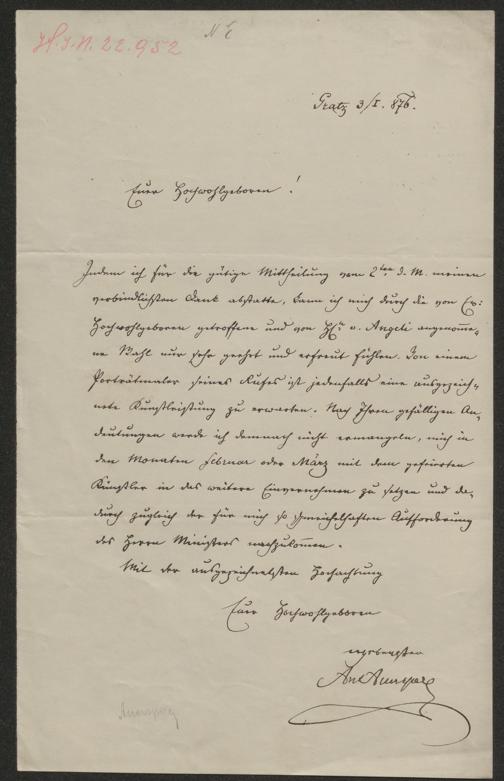 H.I.N. 22.952
Gratz 3/I. 876.
Euer Hochwohlgeboren!
Indem ich für die gütige Mittheilung vom 2ten d. M. meinen
verbindlichsten Dank abstatte, kann ich mich durch die von Ew:
Hochwohlgeboren getroffene und von Hrn v. Angeli angenomme-
ne Wahl nur sehr geehrt und erfreut fühlen. Von einem
Porträtmaler seines Rufes ist jedenfalls eine ausgezeich-
nete Kunstleistung zu erwarten. Nach Ihren gefälligen An-
deutungen werde ich demnach nicht ermangeln, mich in
den Monaten Februar oder März mit dem gefeierten
Künstler in das weitere Einvernehmen zu setzen und da-
durch zugleich der für mich so schmeichelhaften Aufforderung
des Herrn Ministers nachzukommen.
Mit der ausgezeichnetsten Hochachtung
Euer Hochwohlgeboren
ergebenster
Ant Auersperg
Auersperg